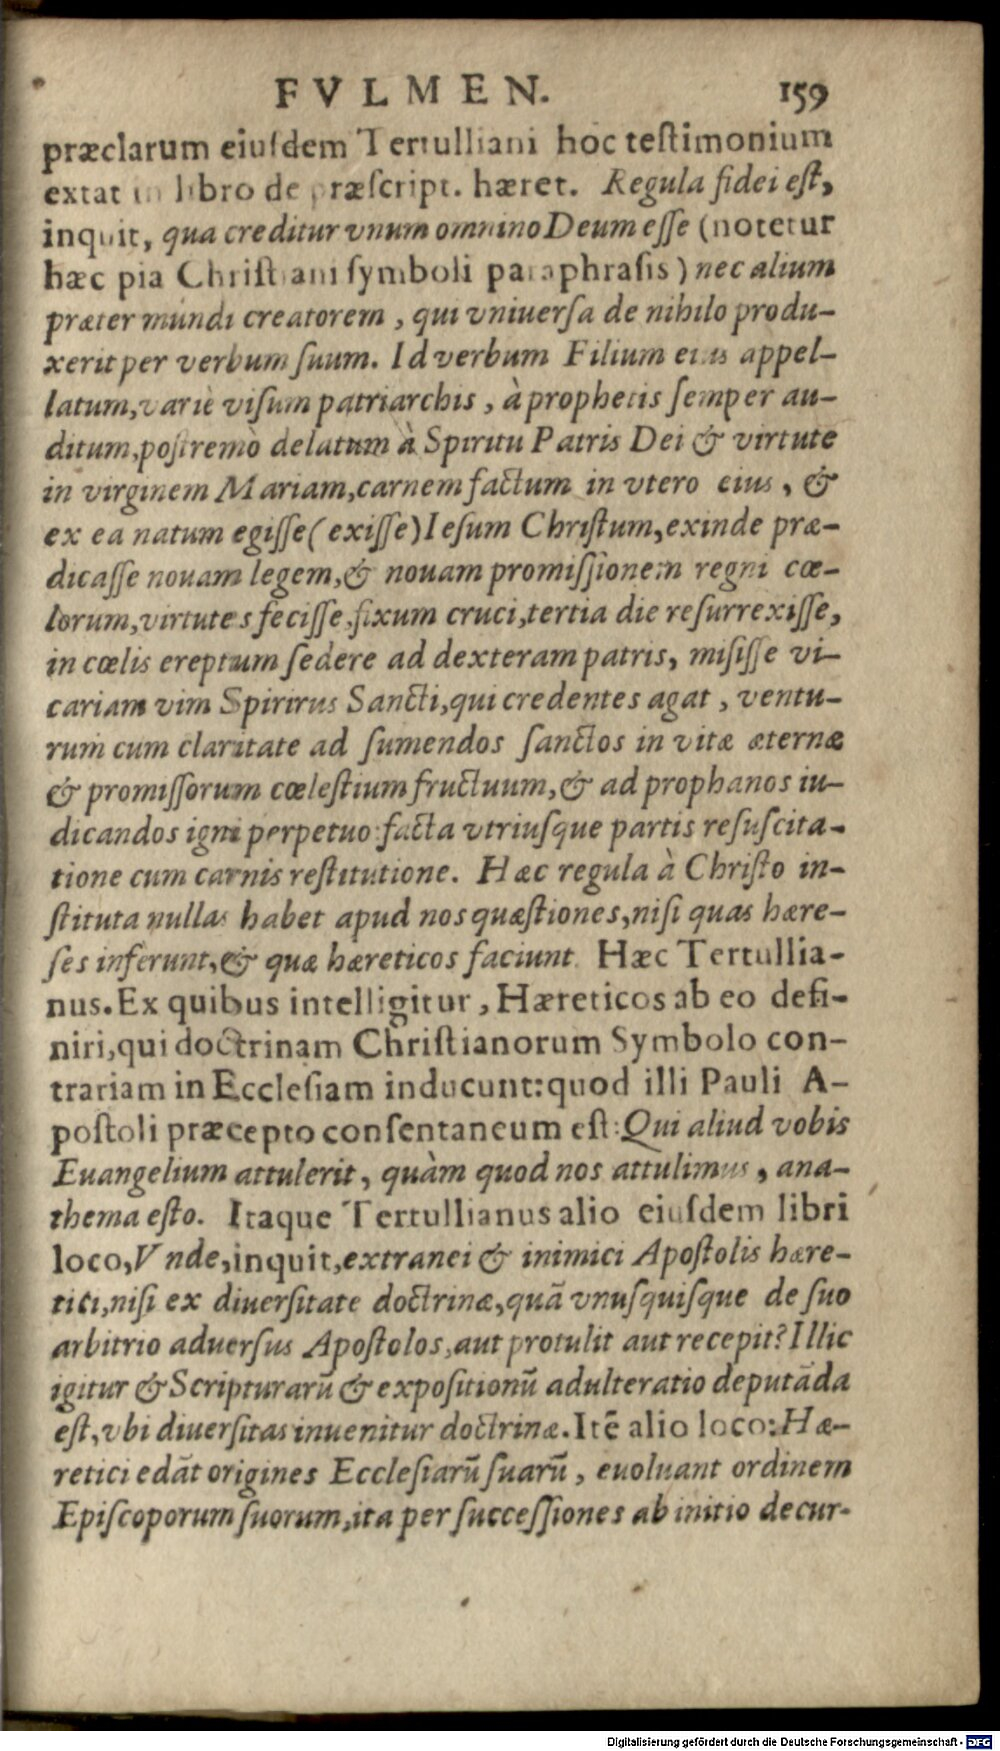 FVLMEN. 159
præclarum eiuſdem Tertulliani hoc teſtimonium
extat in libro de præſcript. hæret. Regula fidei eſt,
inquit, qua creditur vnum omnino Deum eſſe (notetur
hæc pia Chriſtiani ſymboli paraphraſis) nec alium
præter mundi creatorem, qui vniuerſa de nihilo produ-
xerit per verbum ſuum. Id verbum Filium eius appel-
latum, variè viſum patriarchis, à prophetis ſemper au-
ditum, poſtremò delatum à Spiritu Patris Dei & virtute
in virginem Mariam, carnem factum in vtero eius, &
ex ea natum egiſſe (exiſſe) Ieſum Chriſtum, exinde præ-
dicaſſe nouam legem, & nouam promiſſionem regni cœ-
lorum, virtutes feciſſe, fixum cruci, tertia die reſurrexiſſe,
in cœlis ereptum ſedere ad dexteram patris, miſiſſe vi-
cariam vim Spiritus Sancti, qui credentes agat, ventu-
rum cum claritate ad ſumendos ſanctos in vitæ æternæ
& promiſſorum cœleſtium fructuum, & ad prophanos iu-
dicandos igni perpetuo: facta vtriuſque partis reſuſcita-
tione cum carnis reſtitutione. Hæc regula à Chriſto in-
ſtituta nullas habet apud nos quæſtiones, niſi quas hære-
ſes inferunt, & quæ hæreticos faciunt. Hæc Tertullia-
nus. Ex quibus intelligitur, Hæreticos ab eo defi-
niri, qui doctrinam Chriſtianorum Symbolo con-
trariam in Eccleſiam inducunt: quod illi Pauli A-
poſtoli præcepto conſentaneum eſt: Qui aliud vobis
Euangelium attulerit, quàm quod nos attulimus, ana-
thema eſto. Itaque Tertullianus alio eiuſdem libri
loco, Vnde, inquit, extranei & inimici Apoſtolis hære-
tici, niſi ex diuerſitate doctrinæ, quā vnuſquiſque de ſuo
arbitrio aduerſus Apoſtolos, aut protulit aut recepit? Illic
igitur & Scripturarū & expoſitionū adulteratio deputāda
eſt, vbi diuerſitas inuenitur doctrinæ. Itē alio loco: Hæ-
retici edāt origines Eccleſiarū ſuarū, euoluant ordinem
Epiſcoporum ſuorum, ita per ſucceſſiones ab initio decur-
Digitalisierung gefördert durch die Deutsche Forschungsgemeinschaft - DFG